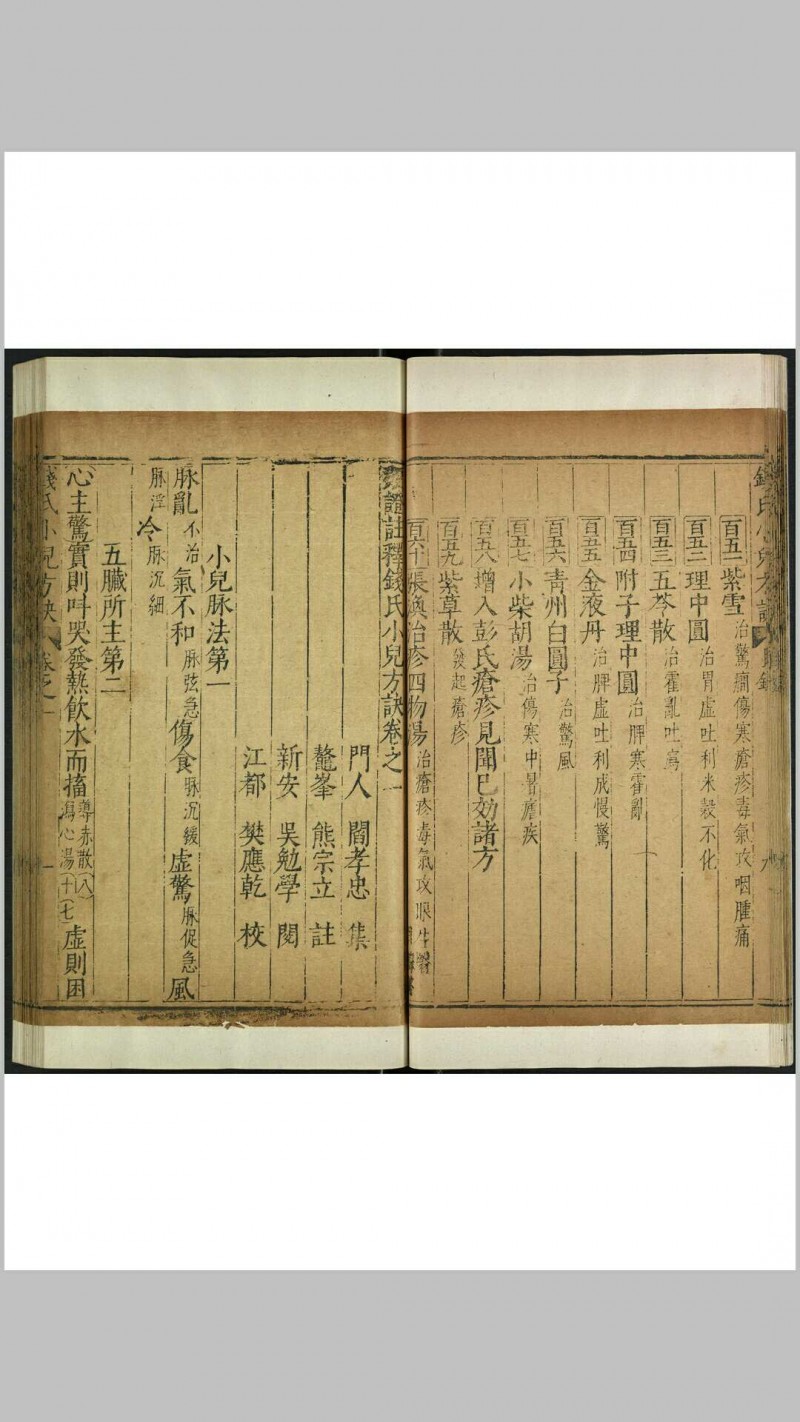 錢氏小兒方訣 目錄 九
百五一 紫雪 治驚癇傷寒瘡疹毒氣攻咽腫痛
百五二 理中圓 治胃虛吐利米穀不化
百五三 五苓散 治霍亂吐瀉
百五四 附子理中圓 治脾寒霍亂
百五五 金液丹 治脾虛吐利成慢驚
百五六 青州白圓子 治驚風
百五七 小柴胡湯 治傷寒中暑瘧疾
百五八 增入彭氏瘡疹見聞已効諸方
百五九 紫草散 發起瘡疹
百六十 張渙治疹四物湯 治瘡疹毒氣攻眼生翳
證註釋錢氏小兒方訣卷之一
門人 閻孝忠 集
鼇峯 熊宗立 註
新安 吳勉學 閱
江都 樊應乾 校
小兒脉法第一
脉亂 不治 氣不和 脉弦急 傷食 脉沉緩 虛驚 脉促急 風
脉浮 冷 脉沉細
五臟所主第二
心主驚實則呌哭發熱飲水而搐 導赤散(八)瀉心湯(十七) 虛則困
錢氏小兒方訣 卷之一 一